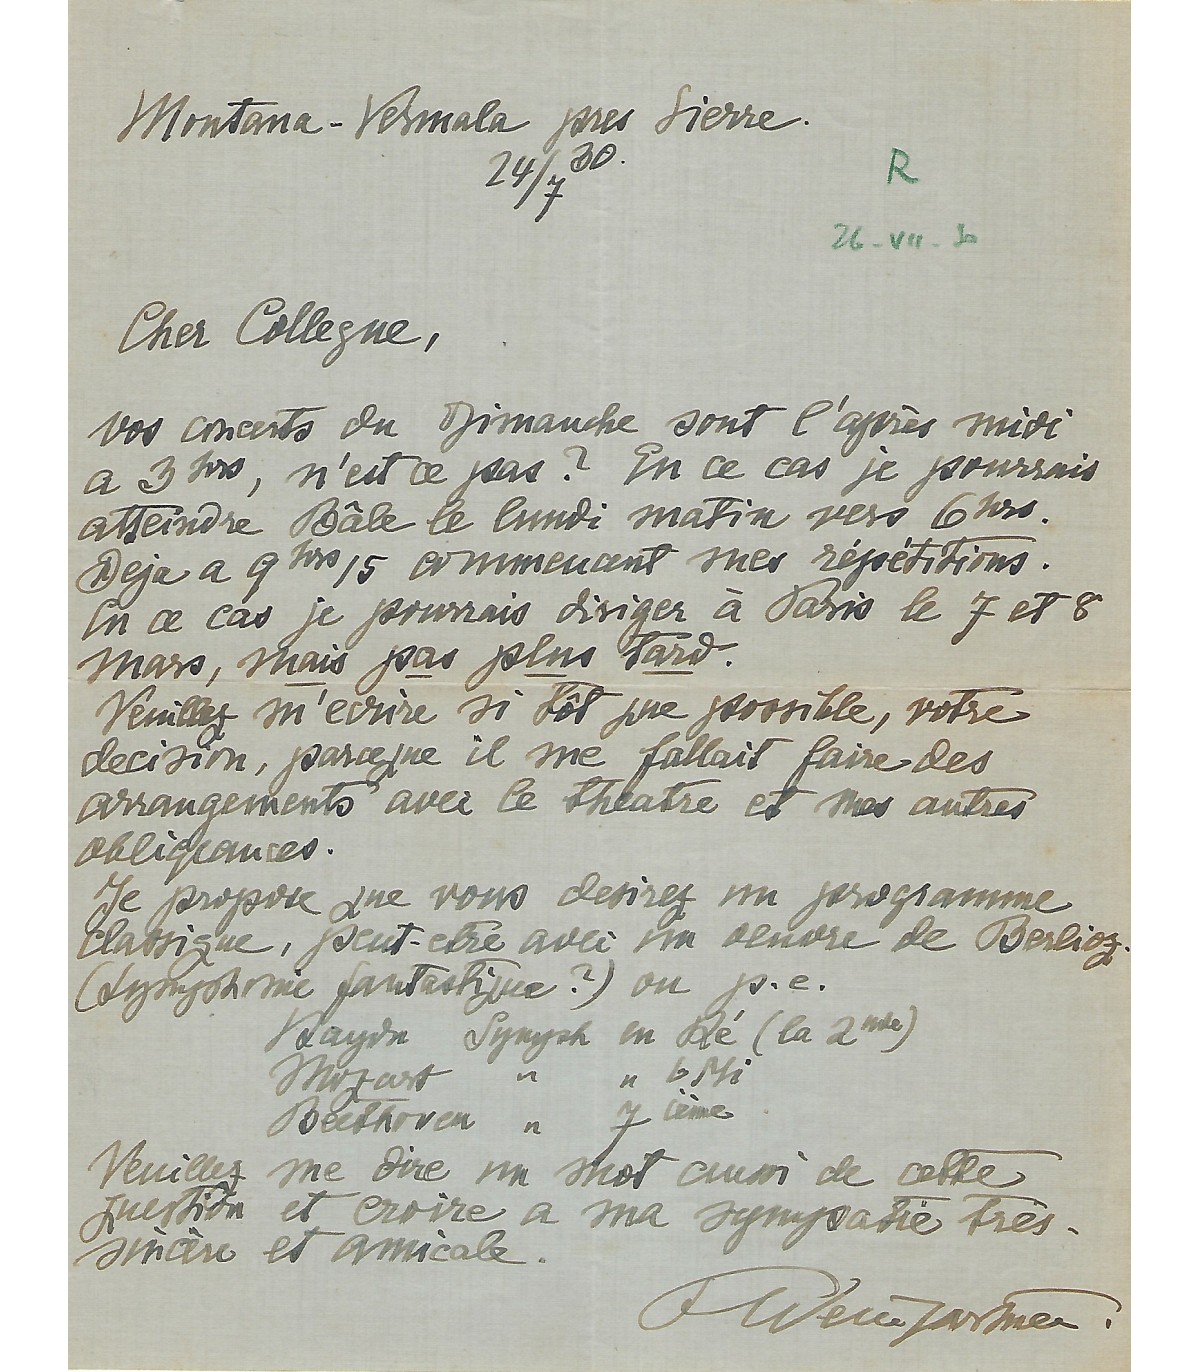 Montana-Vermala pres Sierre.
24/7 30.
R
26-VII-30
Cher Collegue,
Vos concerts du Dimanche sont l'après midi
a 3 hrs, n'est ce pas? En ce cas je pourrais
atteindre Bâle le lundi matin vers 6 hrs.
Deja a 9 hrs 15 commencent mes répétitions.
En ce cas je pourrais diriger à Paris le 7 et 8
mars, mais pas plus tard.
Veuillez m'ecrire si tôt que possible, votre
decision, parceque il me fallait faire des
arrangements avec le theatre et mes autres
obligeances.
Je propose que vous desirez un programme
classique, peut-etre avec un oeuvre de Berlioz.
(Symphonie fantastique?) ou p.e.
Haydn Symph en Ré (la 2nde)
Mozart " " b Mi
Beethoven " 7 ième
Veuillez me dire un mot aussi de cette
question et croire a ma sympatie très-
sincère et amicale.
F Weingartner.